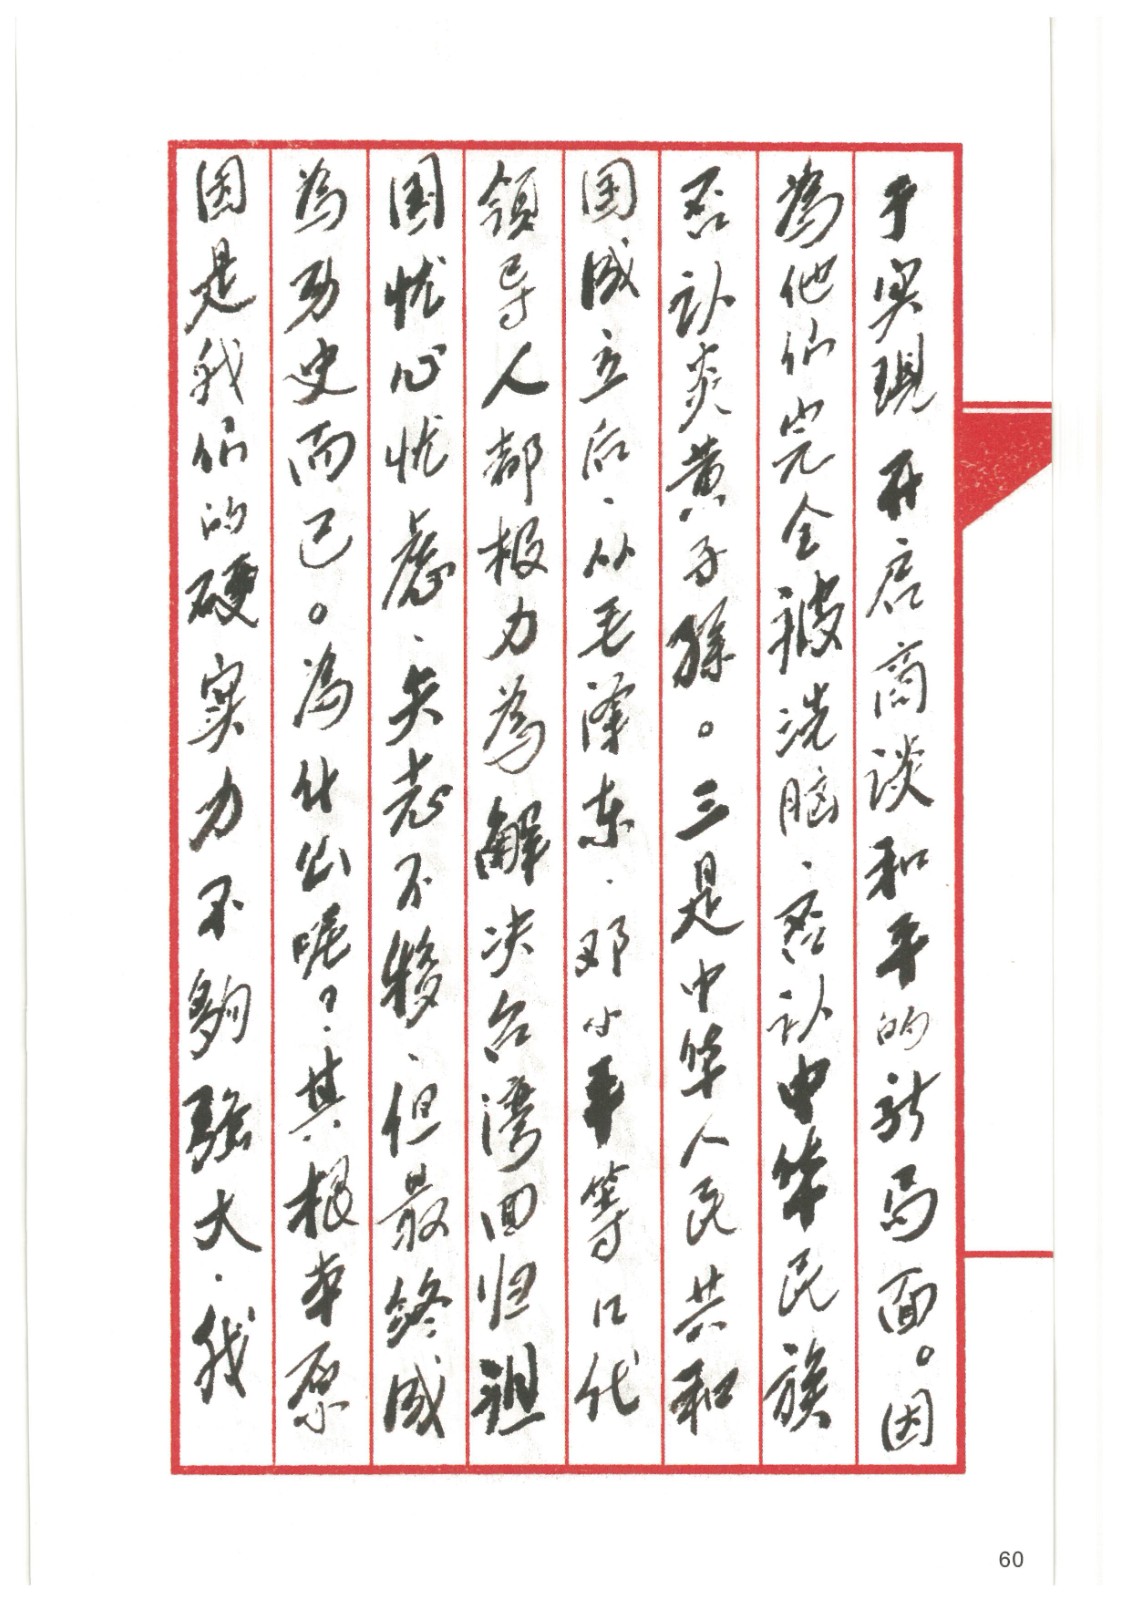 于实现开启商谈和平的新局面。因
為他们完全被洗脑、否认中华民族
否认炎黄子孫。三是中华人民共和
国成立后、从毛泽东、邓小平等几代
领导人都极力為解决台湾回归祖
国忧心忧慮、矢志不移、但最终成
為历史而已。為什么呢？其根本原
因是我们的硬实力不夠强大、我
60